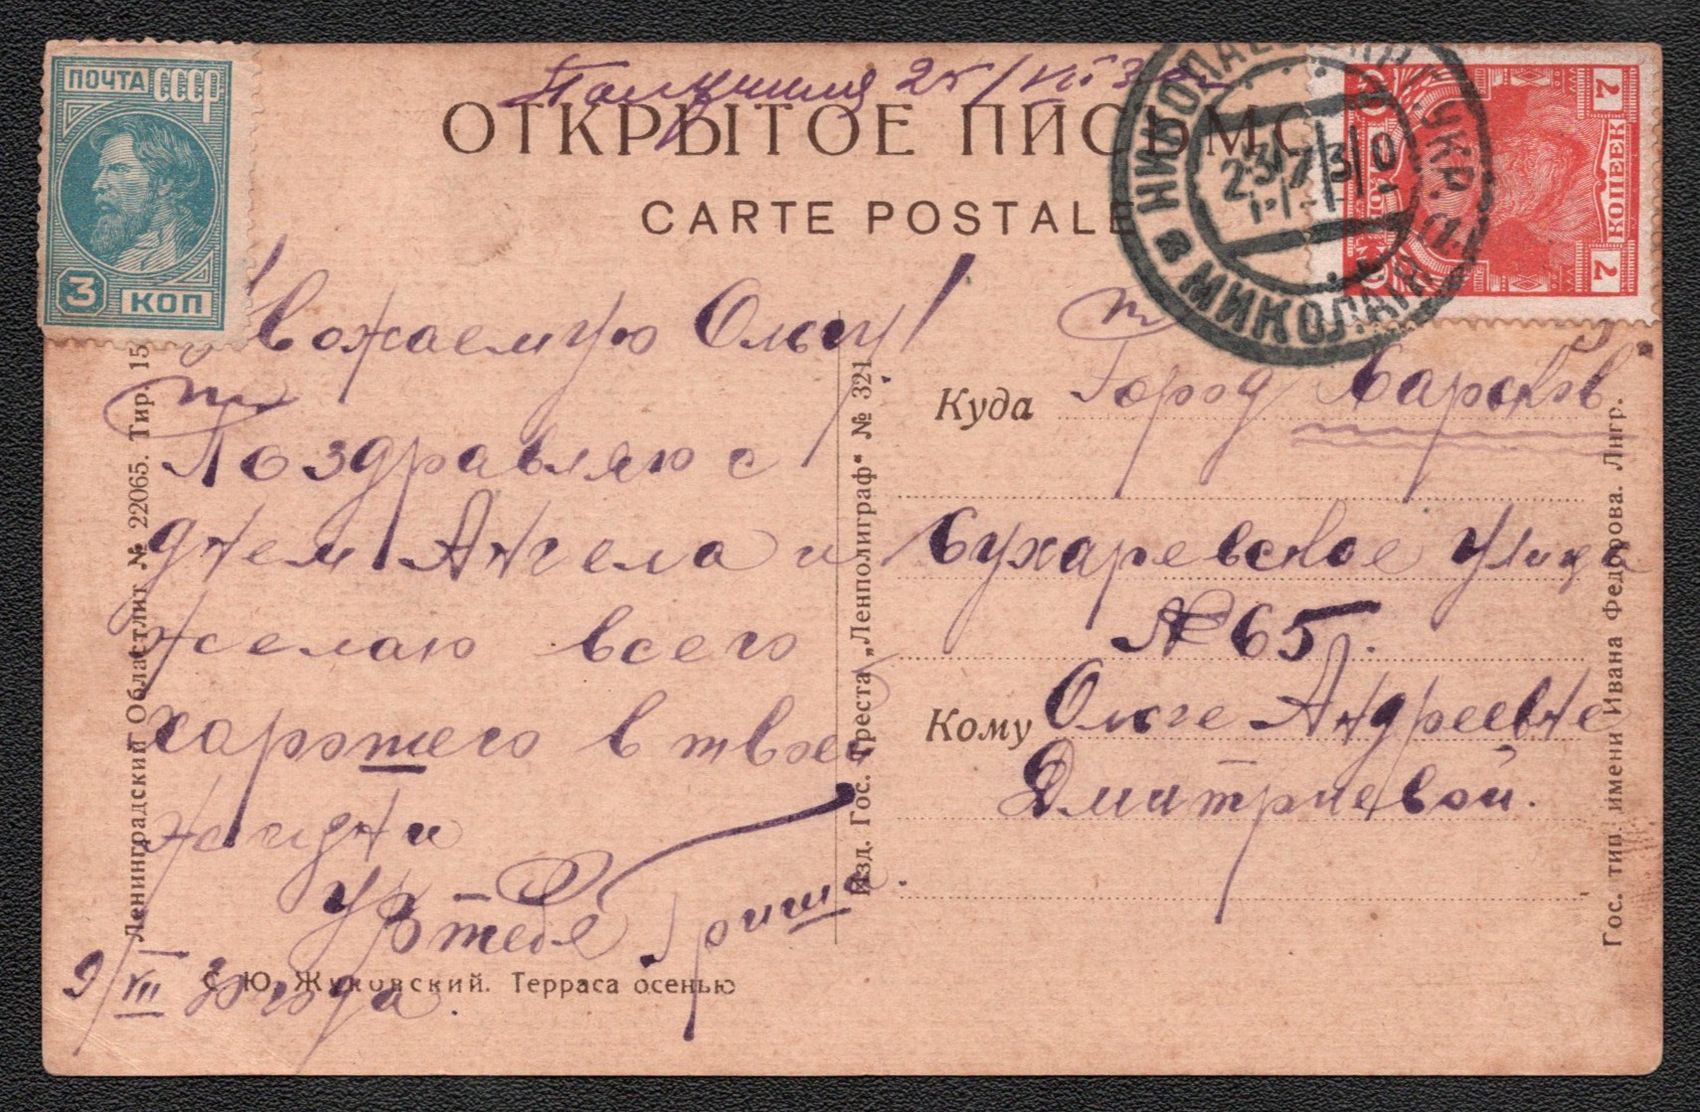 ПОЧТА СССР
3 КОП
Получила 25/VII 30
ОТКРЫТОЕ ПИСЬМО
CARTE POSTALE
НИКОЛАЕВ УКР.
23 7 30
МИКОЛАЇВ
7 КОПЕЕК 7
Увожаемую Ольгу!
Поздравляю с
днем Ангела и
желаю всего
харошего в твоей
жизни
тебя Гриша.
9/VII 30 года.
С. Ю. Жуковский. Терраса осенью
Ленинградский Областлит № 22065. Тир. 15
Изд. Гос. Треста „Ленполиграф“ № 321.
Куда Город Харьков
Сухаревское улица
№ 65.
Кому Ольге Андреевне
Дмитриевой.
Гос. тип. имени Ивана Федорова. Лнгр.